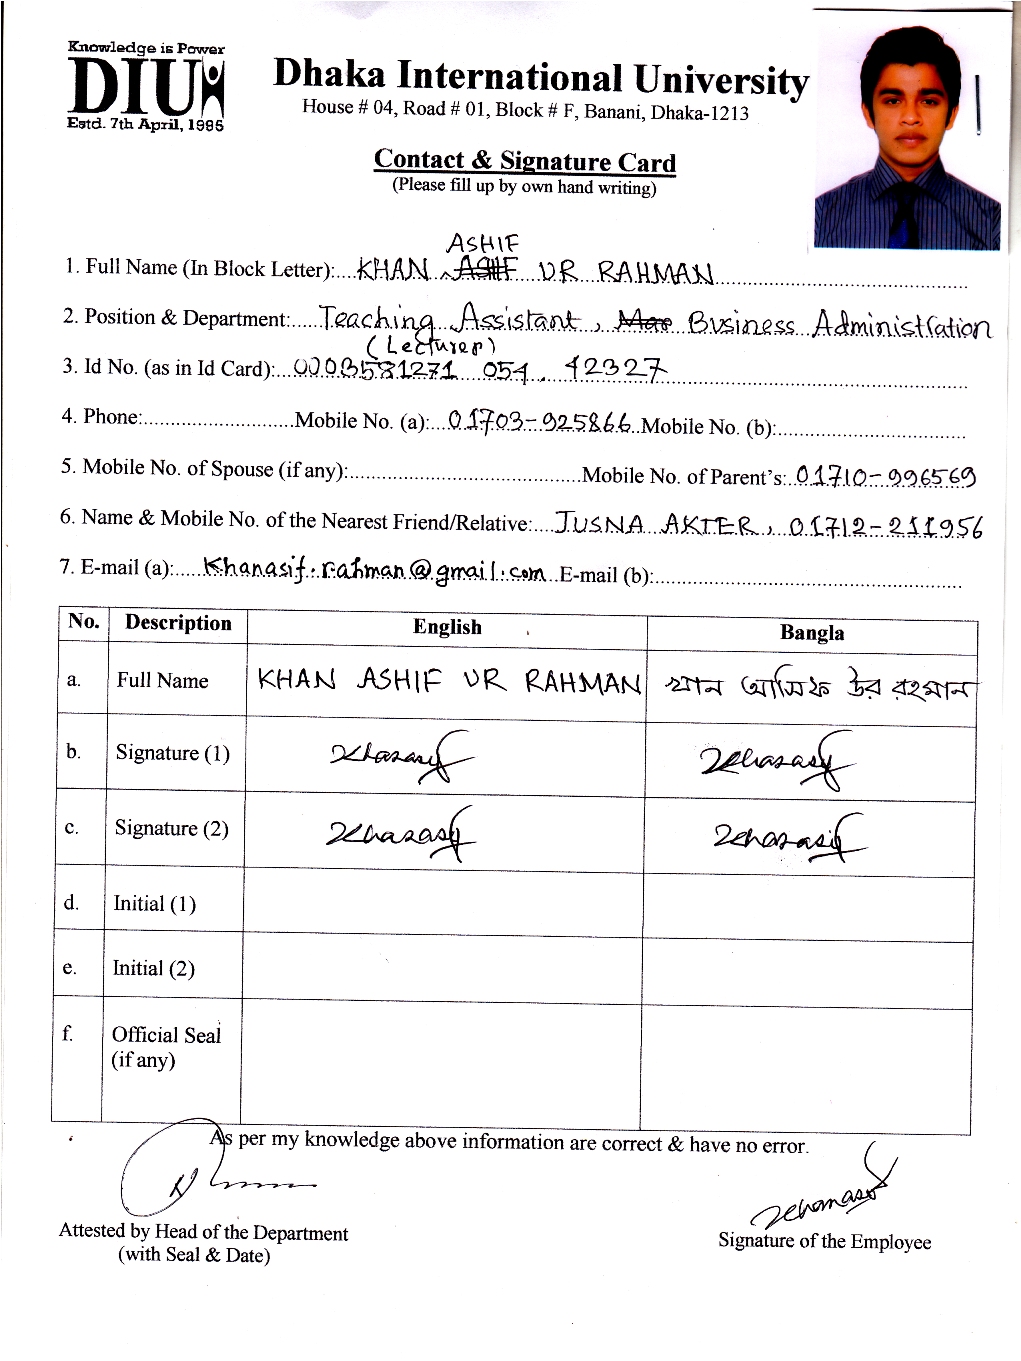 Knowledge is Power
DIU
Estd. 7th April, 1995
Dhaka International University
House # 04, Road # 01, Block # F, Banani, Dhaka-1213
Contact & Signature Card
(Please fill up by own hand writing)
ASHIF
1. Full Name (In Block Letter):....KHAN ASIF UR RAHMAN
2. Position & Department:.....Teaching Assistant, Business Administration
(Lecturer)
3. Id No. (as in Id Card):...0003581271 054, 42327
4. Phone:..........................Mobile No. (a):...01703-925866..Mobile No. (b):.................................
5. Mobile No. of Spouse (if any):........................................Mobile No. of Parent's:..01710-996569
6. Name & Mobile No. of the Nearest Friend/Relative:....JUSNA AKTER, 01712-211956
7. E-mail (a):.....khanasif.rahman@gmail.com..E-mail (b):......................................................
No. Description English Bangla
a. Full Name KHAN ASHIF UR RAHMAN খান আসিফ উর রহমান
b. Signature (1) Khanasif Khanasif
c. Signature (2) Khanasif Khanasif
d. Initial (1)
e. Initial (2)
f. Official Seal
(if any)
As per my knowledge above information are correct & have no error.
Khanasif
Attested by Head of the Department
(with Seal & Date)
Signature of the Employee